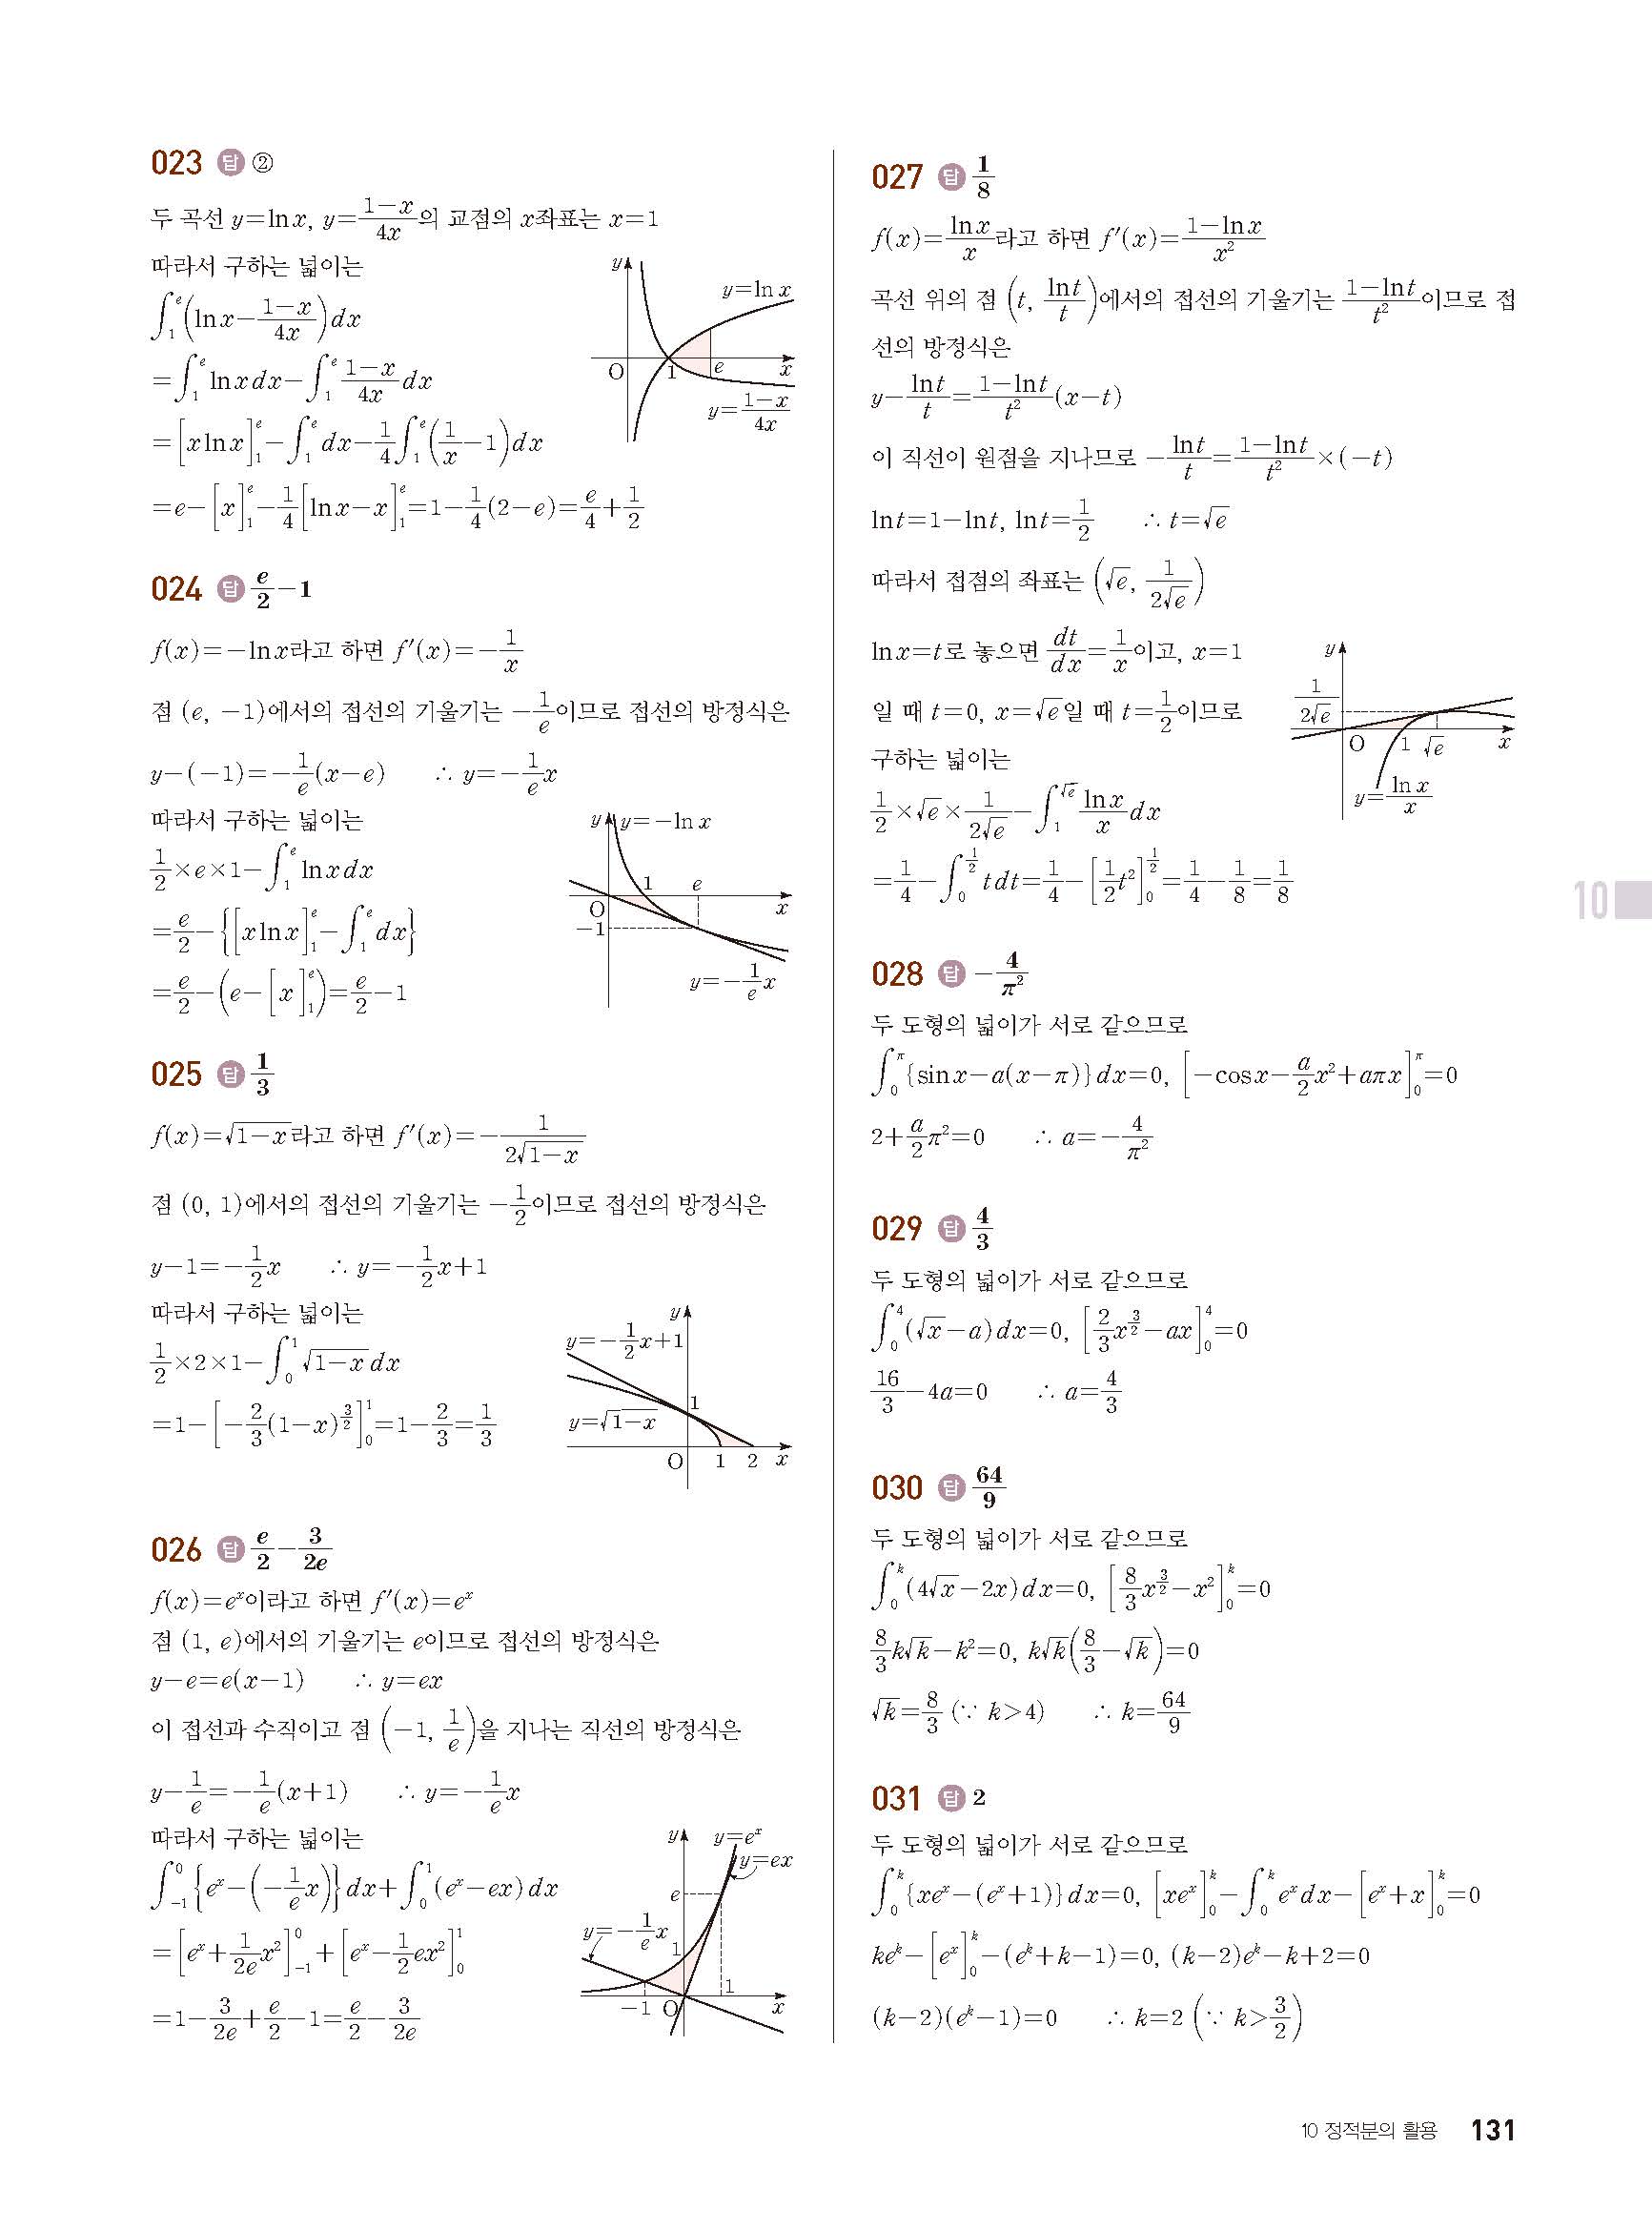 023 답 ②
두 곡선 y=lnx, y=\frac{1-x}{4x}의 교점의 x좌표는 x=1
따라서 구하는 넓이는
\int_{1}^{e}(lnx-\frac{1-x}{4x})dx
=\int_{1}^{e}lnxdx-\int_{1}^{e}\frac{1-x}{4x}dx
=[xlnx]_{1}^{e}-\int_{1}^{e}dx-\frac{1}{4}\int_{1}^{e}(\frac{1}{x}-1)dx
=e-[x]_{1}^{e}-\frac{1}{4}[lnx-x]_{1}^{e}=1-\frac{1}{4}(2-e)=\frac{e}{4}+\frac{1}{2}
y
y=lnx
O 1 e x
y=\frac{1-x}{4x}
024 답 \frac{e}{2}-1
f(x)=-lnx라고 하면 f′(x)=-\frac{1}{x}
점 (e, -1)에서의 접선의 기울기는 -\frac{1}{e}이므로 접선의 방정식은
y-(-1)=-\frac{1}{e}(x-e) ∴ y=-\frac{1}{e}x
따라서 구하는 넓이는
\frac{1}{2}×e×1-\int_{1}^{e}lnxdx
=\frac{e}{2}-{[xlnx]_{1}^{e}-\int_{1}^{e}dx}
=\frac{e}{2}-(e-[x]_{1}^{e})=\frac{e}{2}-1
y y=-lnx
1 e
O x
-1
y=-\frac{1}{e}x
025 답 \frac{1}{3}
f(x)=\sqrt{1-x}라고 하면 f′(x)=-\frac{1}{2\sqrt{1-x}}
점 (0, 1)에서의 접선의 기울기는 -\frac{1}{2}이므로 접선의 방정식은
y-1=-\frac{1}{2}x ∴ y=-\frac{1}{2}x+1
따라서 구하는 넓이는
\frac{1}{2}×2×1-\int_{0}^{1}\sqrt{1-x}dx
=1-[-\frac{2}{3}(1-x)^{\frac{3}{2}}]_{0}^{1}=1-\frac{2}{3}=\frac{1}{3}
y
y=-\frac{1}{2}x+1
1
y=\sqrt{1-x}
O 1 2 x
026 답 \frac{e}{2}-\frac{3}{2e}
f(x)=e^{x}이라고 하면 f′(x)=e^{x}
점 (1, e)에서의 기울기는 e이므로 접선의 방정식은
y-e=e(x-1) ∴ y=ex
이 접선과 수직이고 점 (-1, \frac{1}{e})을 지나는 직선의 방정식은
y-\frac{1}{e}=-\frac{1}{e}(x+1) ∴ y=-\frac{1}{e}x
따라서 구하는 넓이는
\int_{-1}^{0}{e^{x}-(-\frac{1}{e}x)}dx+\int_{0}^{1}(e^{x}-ex)dx
=[e^{x}+\frac{1}{2e}x^{2}]_{-1}^{0}+[e^{x}-\frac{1}{2}ex^{2}]_{0}^{1}
=1-\frac{3}{2e}+\frac{e}{2}-1=\frac{e}{2}-\frac{3}{2e}
y y=e^{x}
y=ex
e
y=-\frac{1}{e}x
1
1
-1 O x
027 답 \frac{1}{8}
f(x)=\frac{lnx}{x}라고 하면 f′(x)=\frac{1-lnx}{x^{2}}
곡선 위의 점 (t, \frac{lnt}{t})에서의 접선의 기울기는 \frac{1-lnt}{t^{2}}이므로 접
선의 방정식은
y-\frac{lnt}{t}=\frac{1-lnt}{t^{2}}(x-t)
이 직선이 원점을 지나므로 -\frac{lnt}{t}=\frac{1-lnt}{t^{2}}×(-t)
lnt=1-lnt, lnt=\frac{1}{2} ∴ t=\sqrt{e}
따라서 접점의 좌표는 (\sqrt{e}, \frac{1}{2\sqrt{e}})
lnx=t로 놓으면 \frac{dt}{dx}=\frac{1}{x}이고, x=1
일 때 t=0, x=\sqrt{e}일 때 t=\frac{1}{2}이므로
구하는 넓이는
\frac{1}{2}×\sqrt{e}×\frac{1}{2\sqrt{e}}-\int_{1}^{\sqrt{e}}\frac{lnx}{x}dx
=\frac{1}{4}-\int_{0}^{\frac{1}{2}}tdt=\frac{1}{4}-[\frac{1}{2}t^{2}]_{0}^{\frac{1}{2}}=\frac{1}{4}-\frac{1}{8}=\frac{1}{8}
y
\frac{1}{2\sqrt{e}}
O 1 \sqrt{e} x
y=\frac{lnx}{x}
028 답 -\frac{4}{π^{2}}
두 도형의 넓이가 서로 같으므로
\int_{0}^{π}{sinx-a(x-π)}dx=0, [-cosx-\frac{a}{2}x^{2}+aπx]_{0}^{π}=0
2+\frac{a}{2}π^{2}=0 ∴ a=-\frac{4}{π^{2}}
029 답 \frac{4}{3}
두 도형의 넓이가 서로 같으므로
\int_{0}^{4}(\sqrt{x}-a)dx=0, [\frac{2}{3}x^{\frac{3}{2}}-ax]_{0}^{4}=0
\frac{16}{3}-4a=0 ∴ a=\frac{4}{3}
030 답 \frac{64}{9}
두 도형의 넓이가 서로 같으므로
\int_{0}^{k}(4\sqrt{x}-2x)dx=0, [\frac{8}{3}x^{\frac{3}{2}}-x^{2}]_{0}^{k}=0
\frac{8}{3}k\sqrt{k}-k^{2}=0, k\sqrt{k}(\frac{8}{3}-\sqrt{k})=0
\sqrt{k}=\frac{8}{3} (∵ k>4) ∴ k=\frac{64}{9}
031 답 2
두 도형의 넓이가 서로 같으므로
\int_{0}^{k}{xe^{x}-(e^{x}+1)}dx=0, [xe^{x}]_{0}^{k}-\int_{0}^{k}e^{x}dx-[e^{x}+x]_{0}^{k}=0
ke^{k}-[e^{x}]_{0}^{k}-(e^{k}+k-1)=0, (k-2)e^{k}-k+2=0
(k-2)(e^{k}-1)=0 ∴ k=2 (∵ k>\frac{3}{2})
10
10 정적분의 활용 131